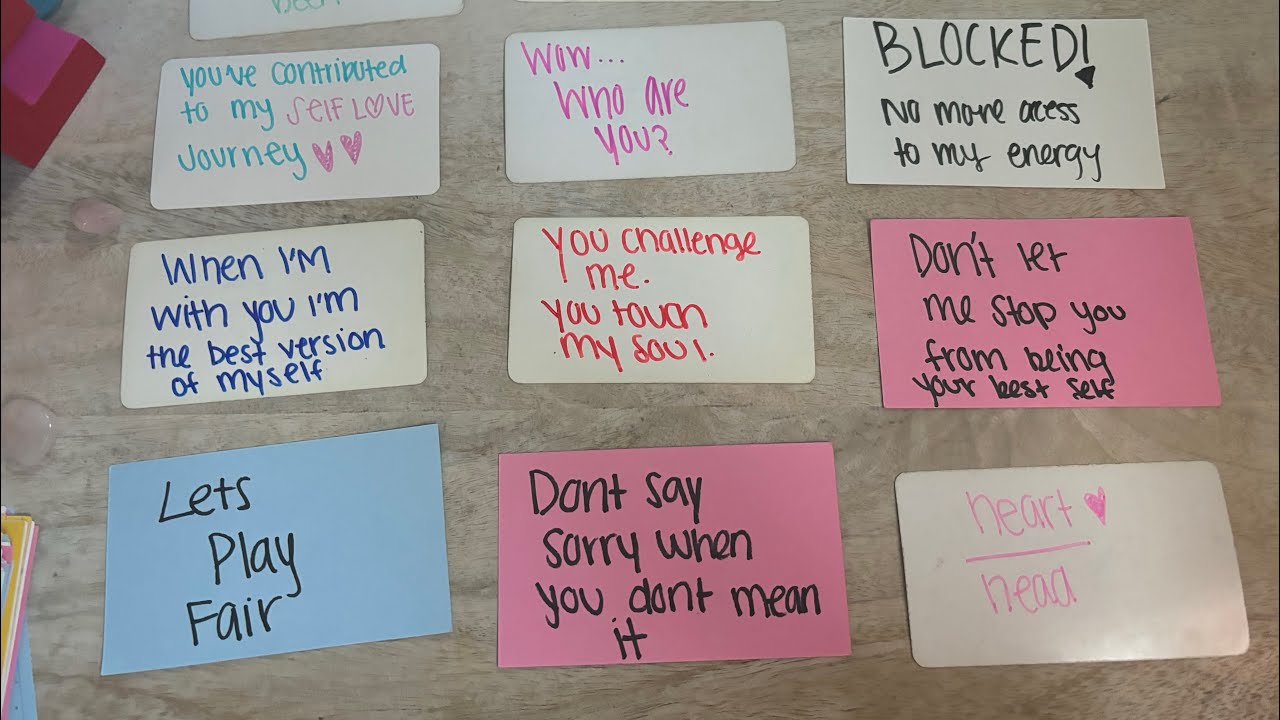 been
you've contributed
to my SELF LOVE
Journey
Wow...
Who are
you?
BLOCKED!
No more acess
to my energy
When I'M
with you I'M
the best version
of myself
You challenge
me.
you touch
my soul.
Don't let
me stop you
from being
your best self
Lets
Play
Fair
Dont say
sorry when
you dont mean
it
heart
head